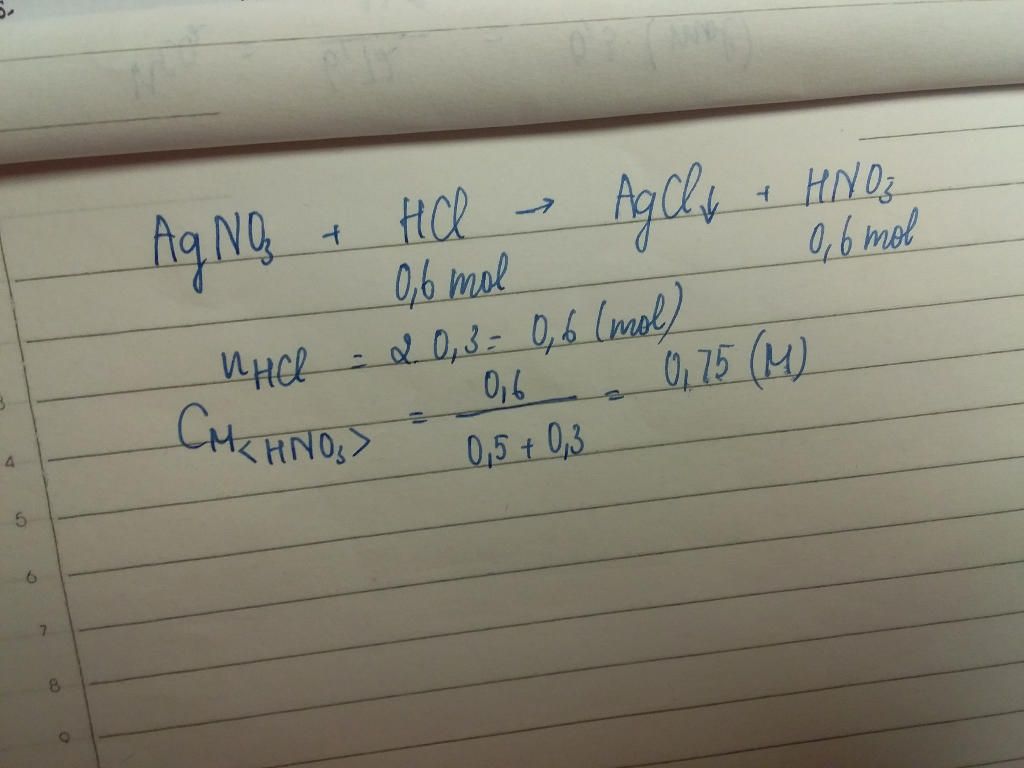 AgNO₃ + HCl → AgCl↓ + HNO₃
0,6 mol 0,6 mol
nHCl = 2.0,3 = 0,6 (mol)
CM<HNO₃> = 0,6 / 0,5 + 0,3 = 0,75 (M)
4
5
6
7
8
9